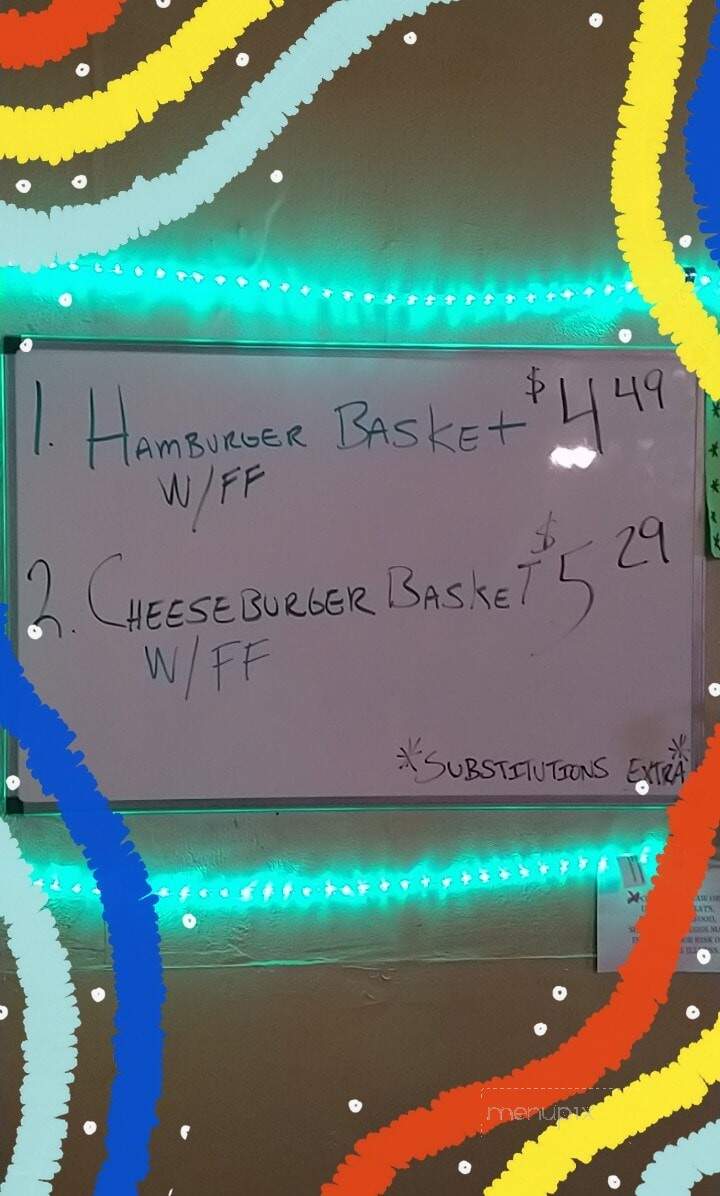 1. HAMBURGER BASKET $4 49
W/FF
2. CHEESEBURGER BASKET $5 29
W/FF
*SUBSTITUTIONS EXTRA*
menupix